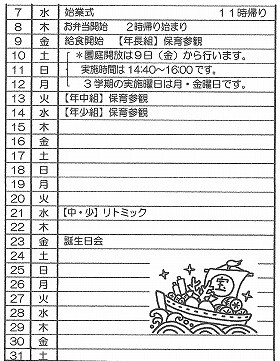 7 水 始業式 11時帰り
8 木 お弁当開始 2時帰り始まり
9 金 給食開始 【年長組】保育参観
10 土 *園庭開放は9日(金)から行います。
11 日 実施時間は14:40~16:00です。
12 月 3学期の実施曜日は月・金曜日です。
13 火 【年中組】保育参観
14 水 【年少組】保育参観
15 木
16 金
17 土
18 日
19 月
20 火
21 水 【中・少】リトミック
22 木
23 金 誕生日会
24 土
25 日
26 月
27 火
28 水
29 木
30 金
31 土
宝